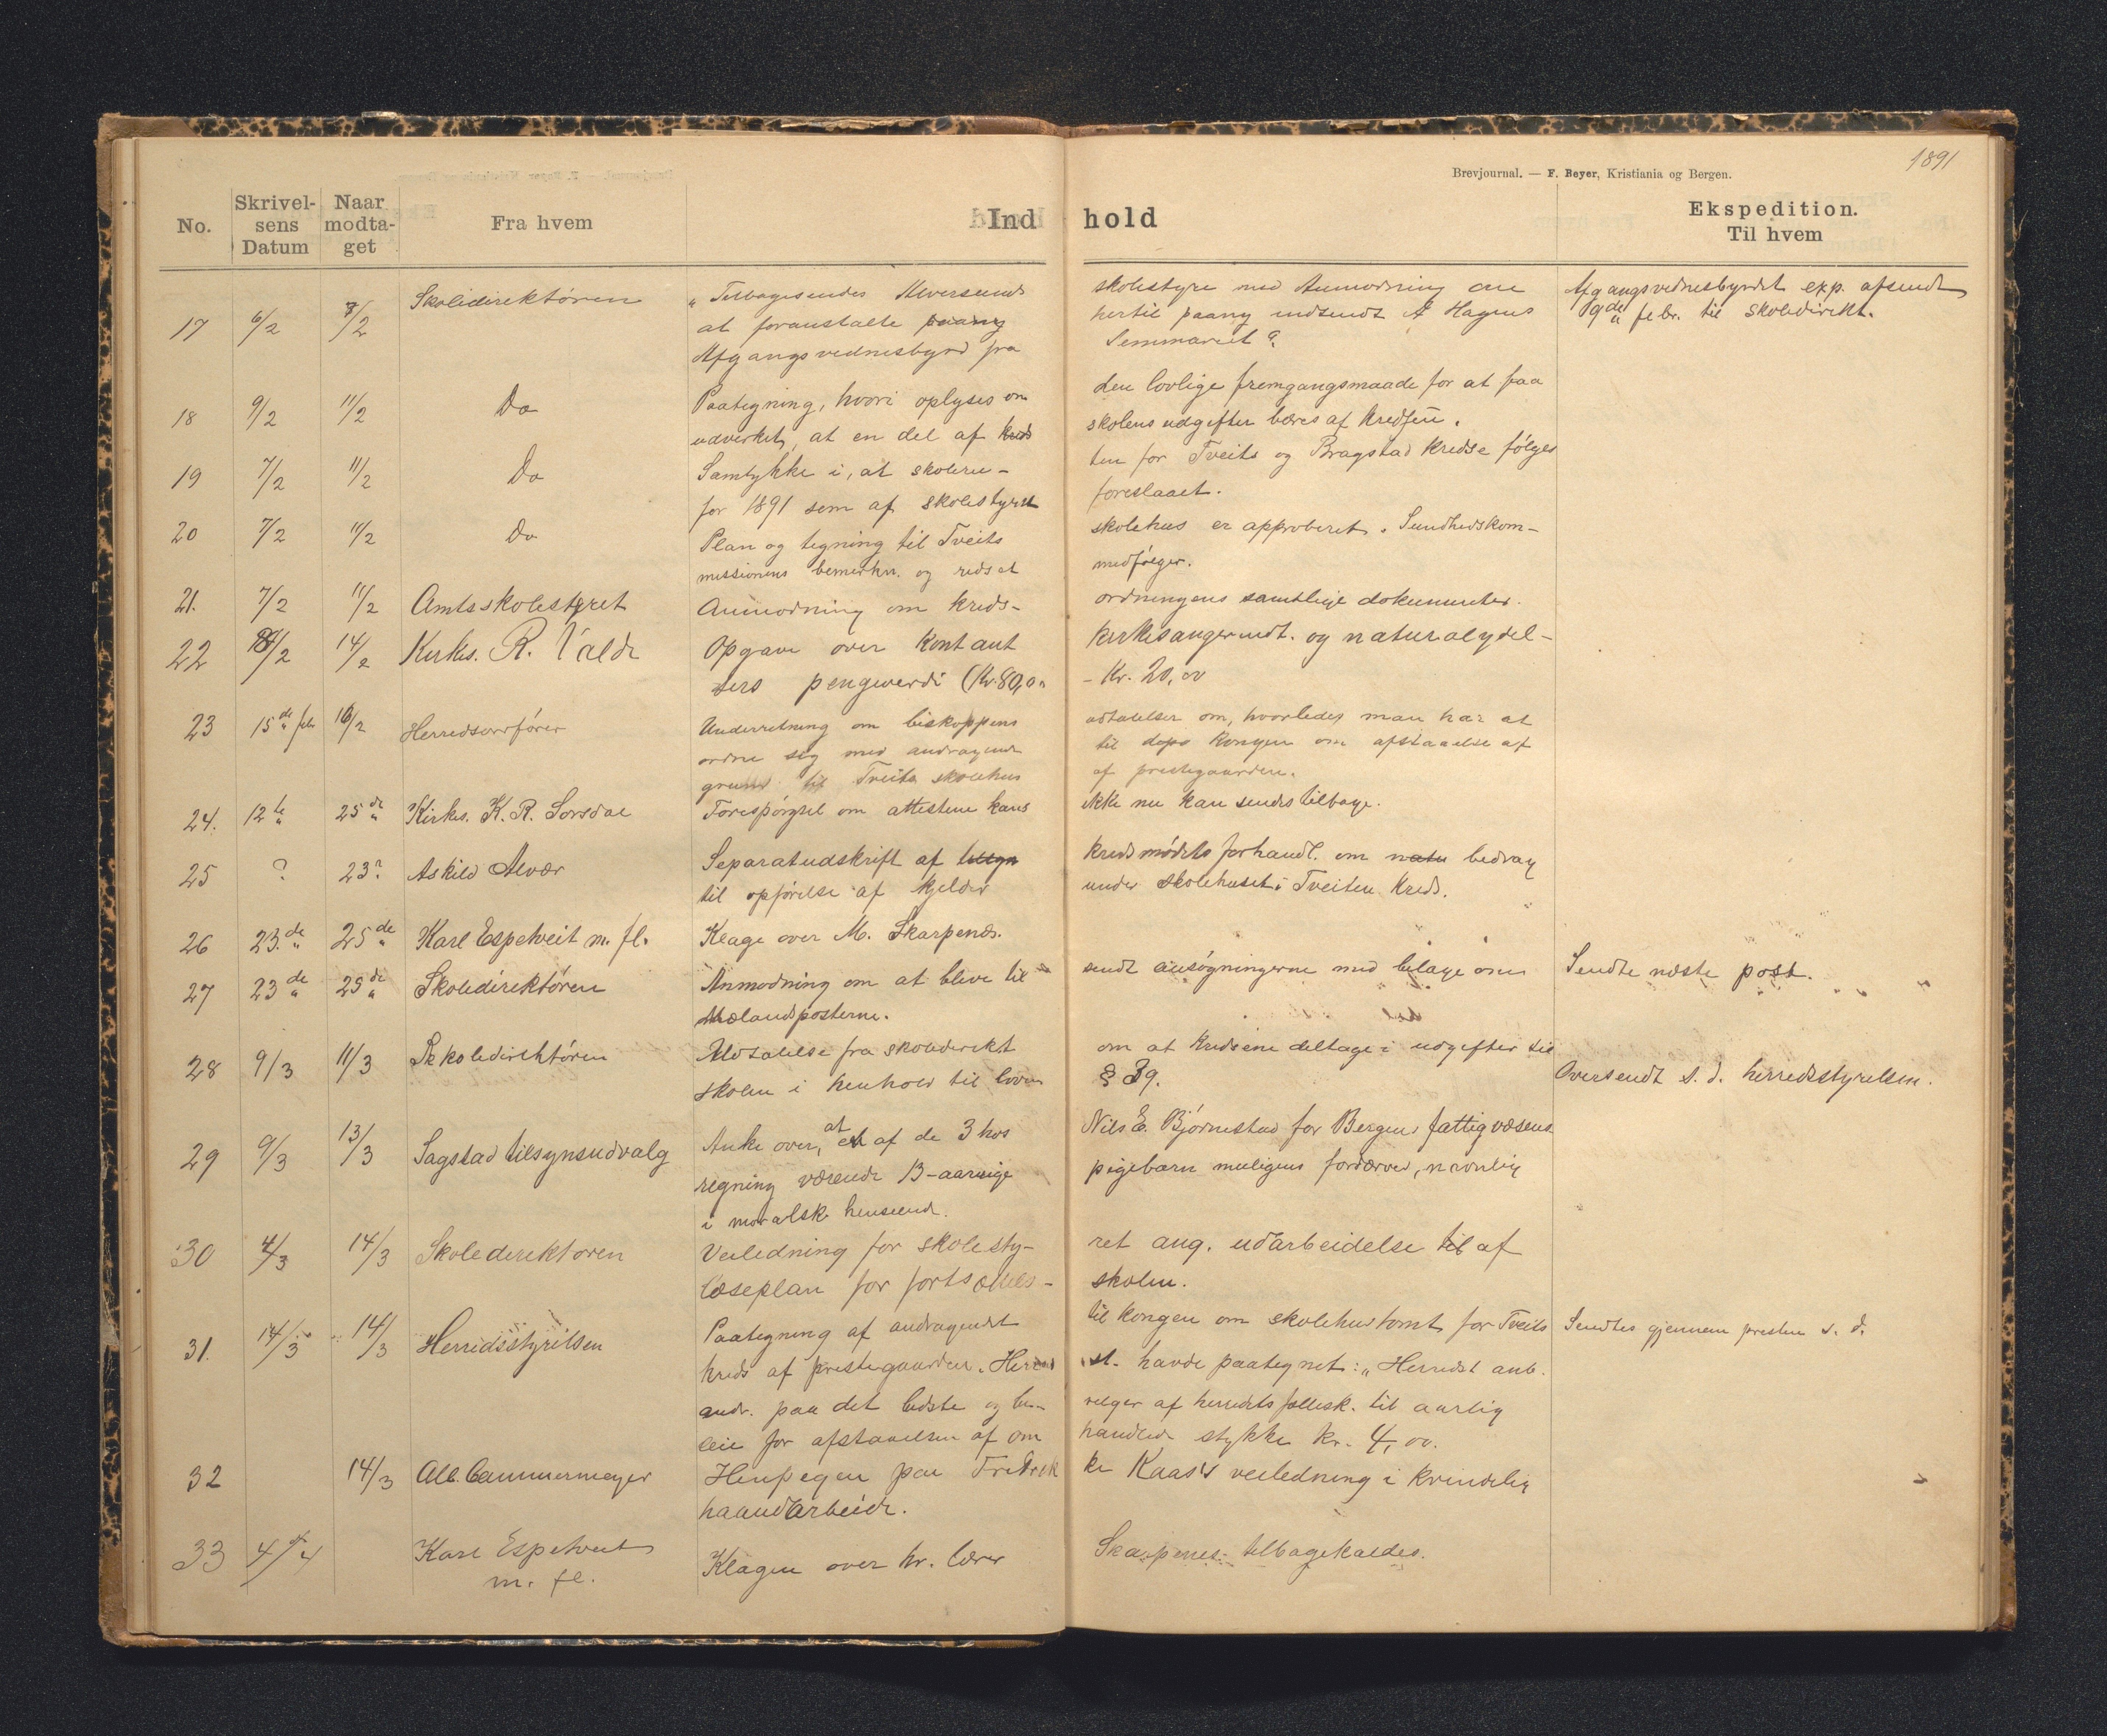 1891
Brevjournal. — F. Beyer, Kristiania og Bergen.
No. Skrivelsens Datum Naar modtaget Fra hvem Indhold Ekspedition. Til hvem
17 6/2 8/2 Skoledirektøren „Tilbagesendes Alversunds skolestyre med Anmodning om Afgangsvidnesbyrdet exp. afsendt
at foranstalte paany hertil paany indsendt A Hagens 9de febr. til Skoledirekt.
Afgangsvidnesbyrd fra Seminariet
18 9/2 11/2 Do Paategning, hvori oplyses om den lovlige fremgangsmaade for at faa
udvirket, at en del af kreds skolens udgifter bæres af Kredsen.
19 7/2 11/2 Do Samtykke i, at skoleru- ten for Tveits og Bragstad Kredse følges
for 1891 som af skolestyret foreslaaet.
20 7/2 11/2 Do Plan og tegning til Tveits skolehus er approberet. Sundhedskom-
missionens bemerkn. og medfølger.
21. 7/2 11/2 Amtsskolestyret Anmodning om kreds- ordningens samtlige dokumenter.
22 8/2 14/2 Kirkes. R. Valde Opgave over Kontant kirkesangerindt. og naturalydel-
sers pengeverdi (Kr. 80,00 - Kr. 20,00
23 15de febr 16/2 Herredsordfører Underretning om biskoppens udtalelser om, hvorledes man har at
ordne sig med andragende til Kongen om afstaaelse af
grund til Tveits skolehus af prestegaarden.
24. 12te 25de Kirkes. K. R. Sorsdal Forespørgsel om attesterne hans ikke nu kan sendes tilbage.
25 ? 23? Askild Alvær Separatudskrift af tilsyn kredsmødets forhandl. om natu bedrag
til opførelse af kjelder under skolehuset i Tveiten Kreds.
26 23.de 25de Karl Espetveit m. fl. Klage over M. Skarpenæs.
27 23de 25de Skoledirektøren Anmodning om at blive til- sendt ansøgningerne med bilage om Sendte næste post.
Mælandsposterne.
28 9/3 11/3 Skoledirektøren Udtalelse fra skoledirekt om at Kredsene deltage i udgifter til
skolen i henhold til loven § 39. Oversendt s. d. herredsstyrelsen.
29 9/3 13/3 Sagstad tilsynsudvalg Anke over, at et af de 3 hos Nils E. Bjørnestad for Bergens fattigvæsens
regning værende 13-aarige pigebarn muligens fordærved, navnlig
i moralsk henseende.
30 4/3 14/3 Skoledirektøren Veiledning for skolesty- ret ang. udarbeidelse til af
læseplan for fortsættels- skolen.
31. 14/3 14/3 Herredsstyrelsen Paategning af andragendet til Kongen om skolehustomt for Tveits Sendtes gjennem presten s. d.
kreds af prestegaarden. Herreds st. havde paategnet: „Herredst anb.
andr. paa det bedste og be- vilger af herredets fællesk. til aarlig
leie for afstaaelsen af om handlede stykke kr. 4,00.
32 14/3 Alb. Cammermeyer Henpegen paa Fredrik ke Kaas's veiledning i kvindelig
haandarbeide.
33 4/4 Karl Espetveit Klagen over hr. lærer Skarpenes tilbagekaldes.
m. fl.